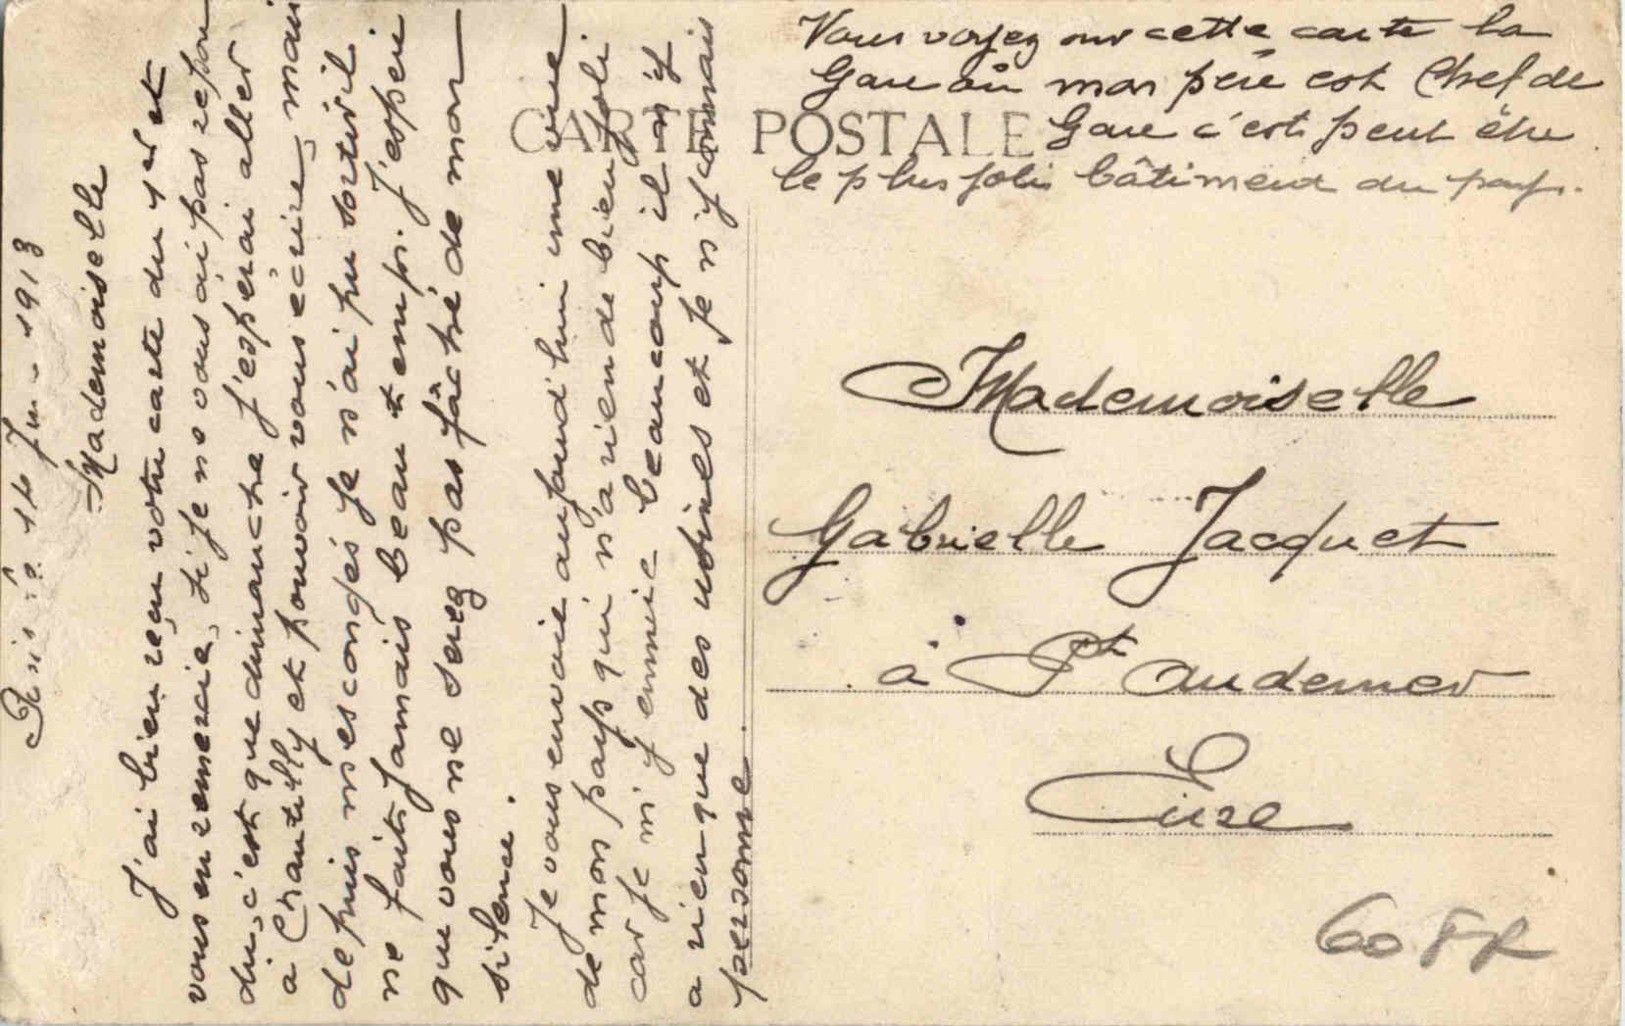 le 14 Jun - 1913
Mademoiselle
J'ai bien reçu votre carte du 1er et
vous en remercie, si je ne vous ai pas répon
du, c'est que dimanche j'espérai aller
a Chantilly et pouvoir vous écrire, mais
depuis mes congés je n'ai pu sortir il
ne faits jamais beau temps. J'espère
que vous ne serez pas fâché de mon
silence.
Je vous envoie aujourd'hui une vue
de mon pays qui n'a rien de bien joli
car je m'y ennuie beaucoup il n'y
a rien que des usines et je n'y connais
personne
Vous voyez sur cette carte la
Gare où mon père est Chef de
CARTE POSTALE
Gare c'est peut être
le plus joli bâtiment du pays.
Mademoiselle
Gabrielle Jacquet
à Pt Audemer
Eure
60 FR